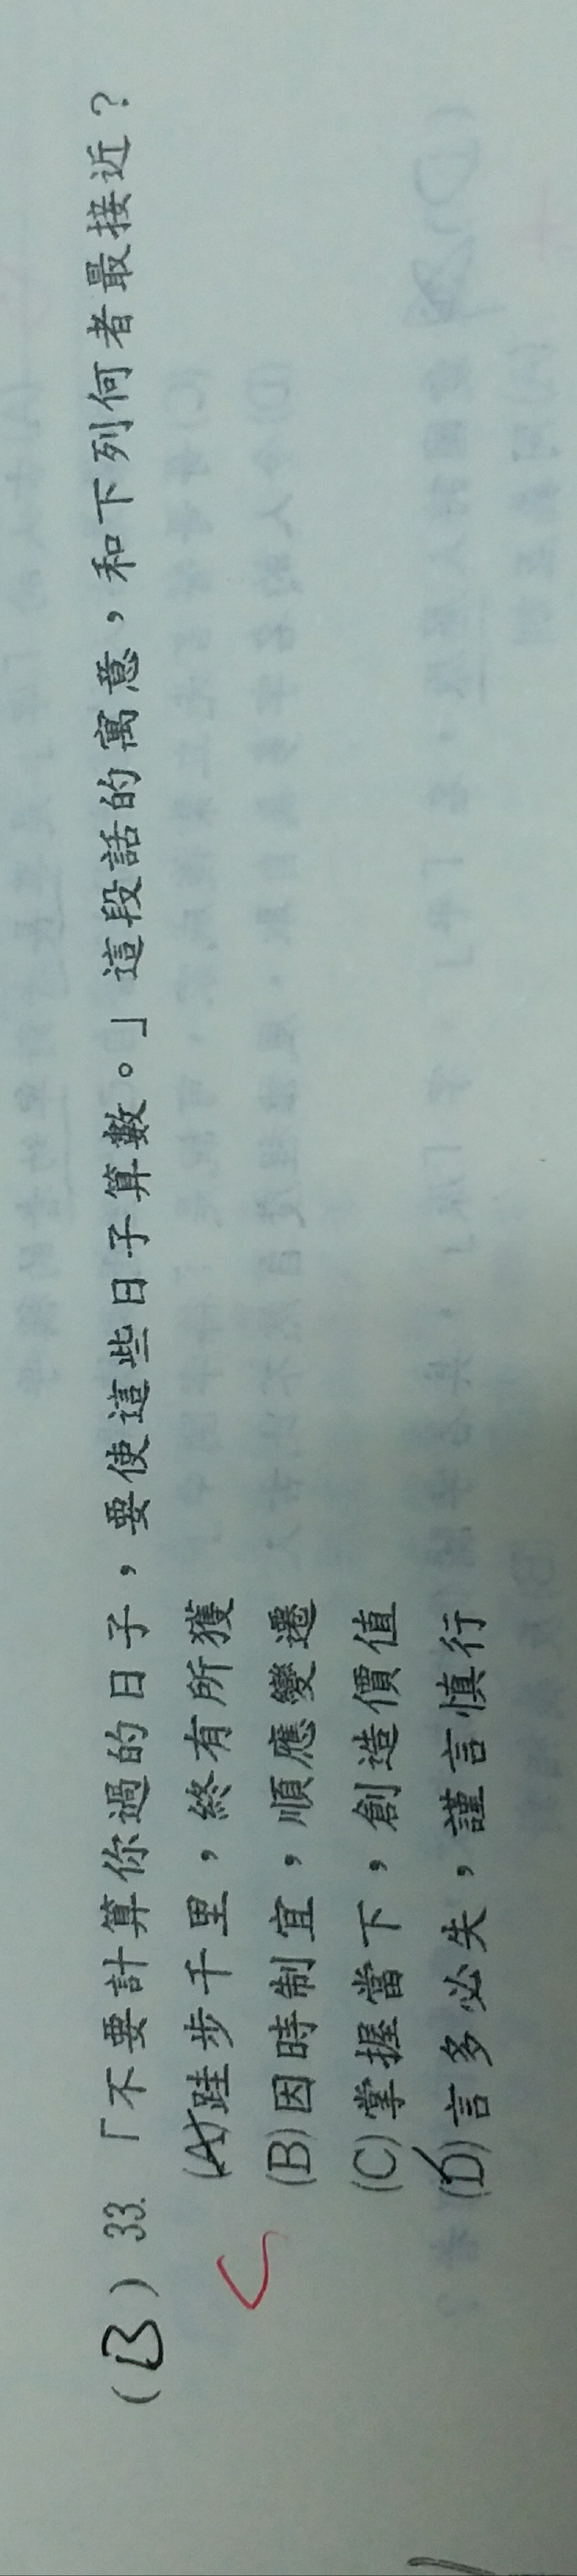 (B) 33.「不要計算你過的日子，要使這些日子算數。」這段話的寓意，和下列何者最接近？
(A)跬步千里，終有所獲
(B)因時制宜，順應變遷
(C)掌握當下，創造價值
(D)言多必失，謹言慎行